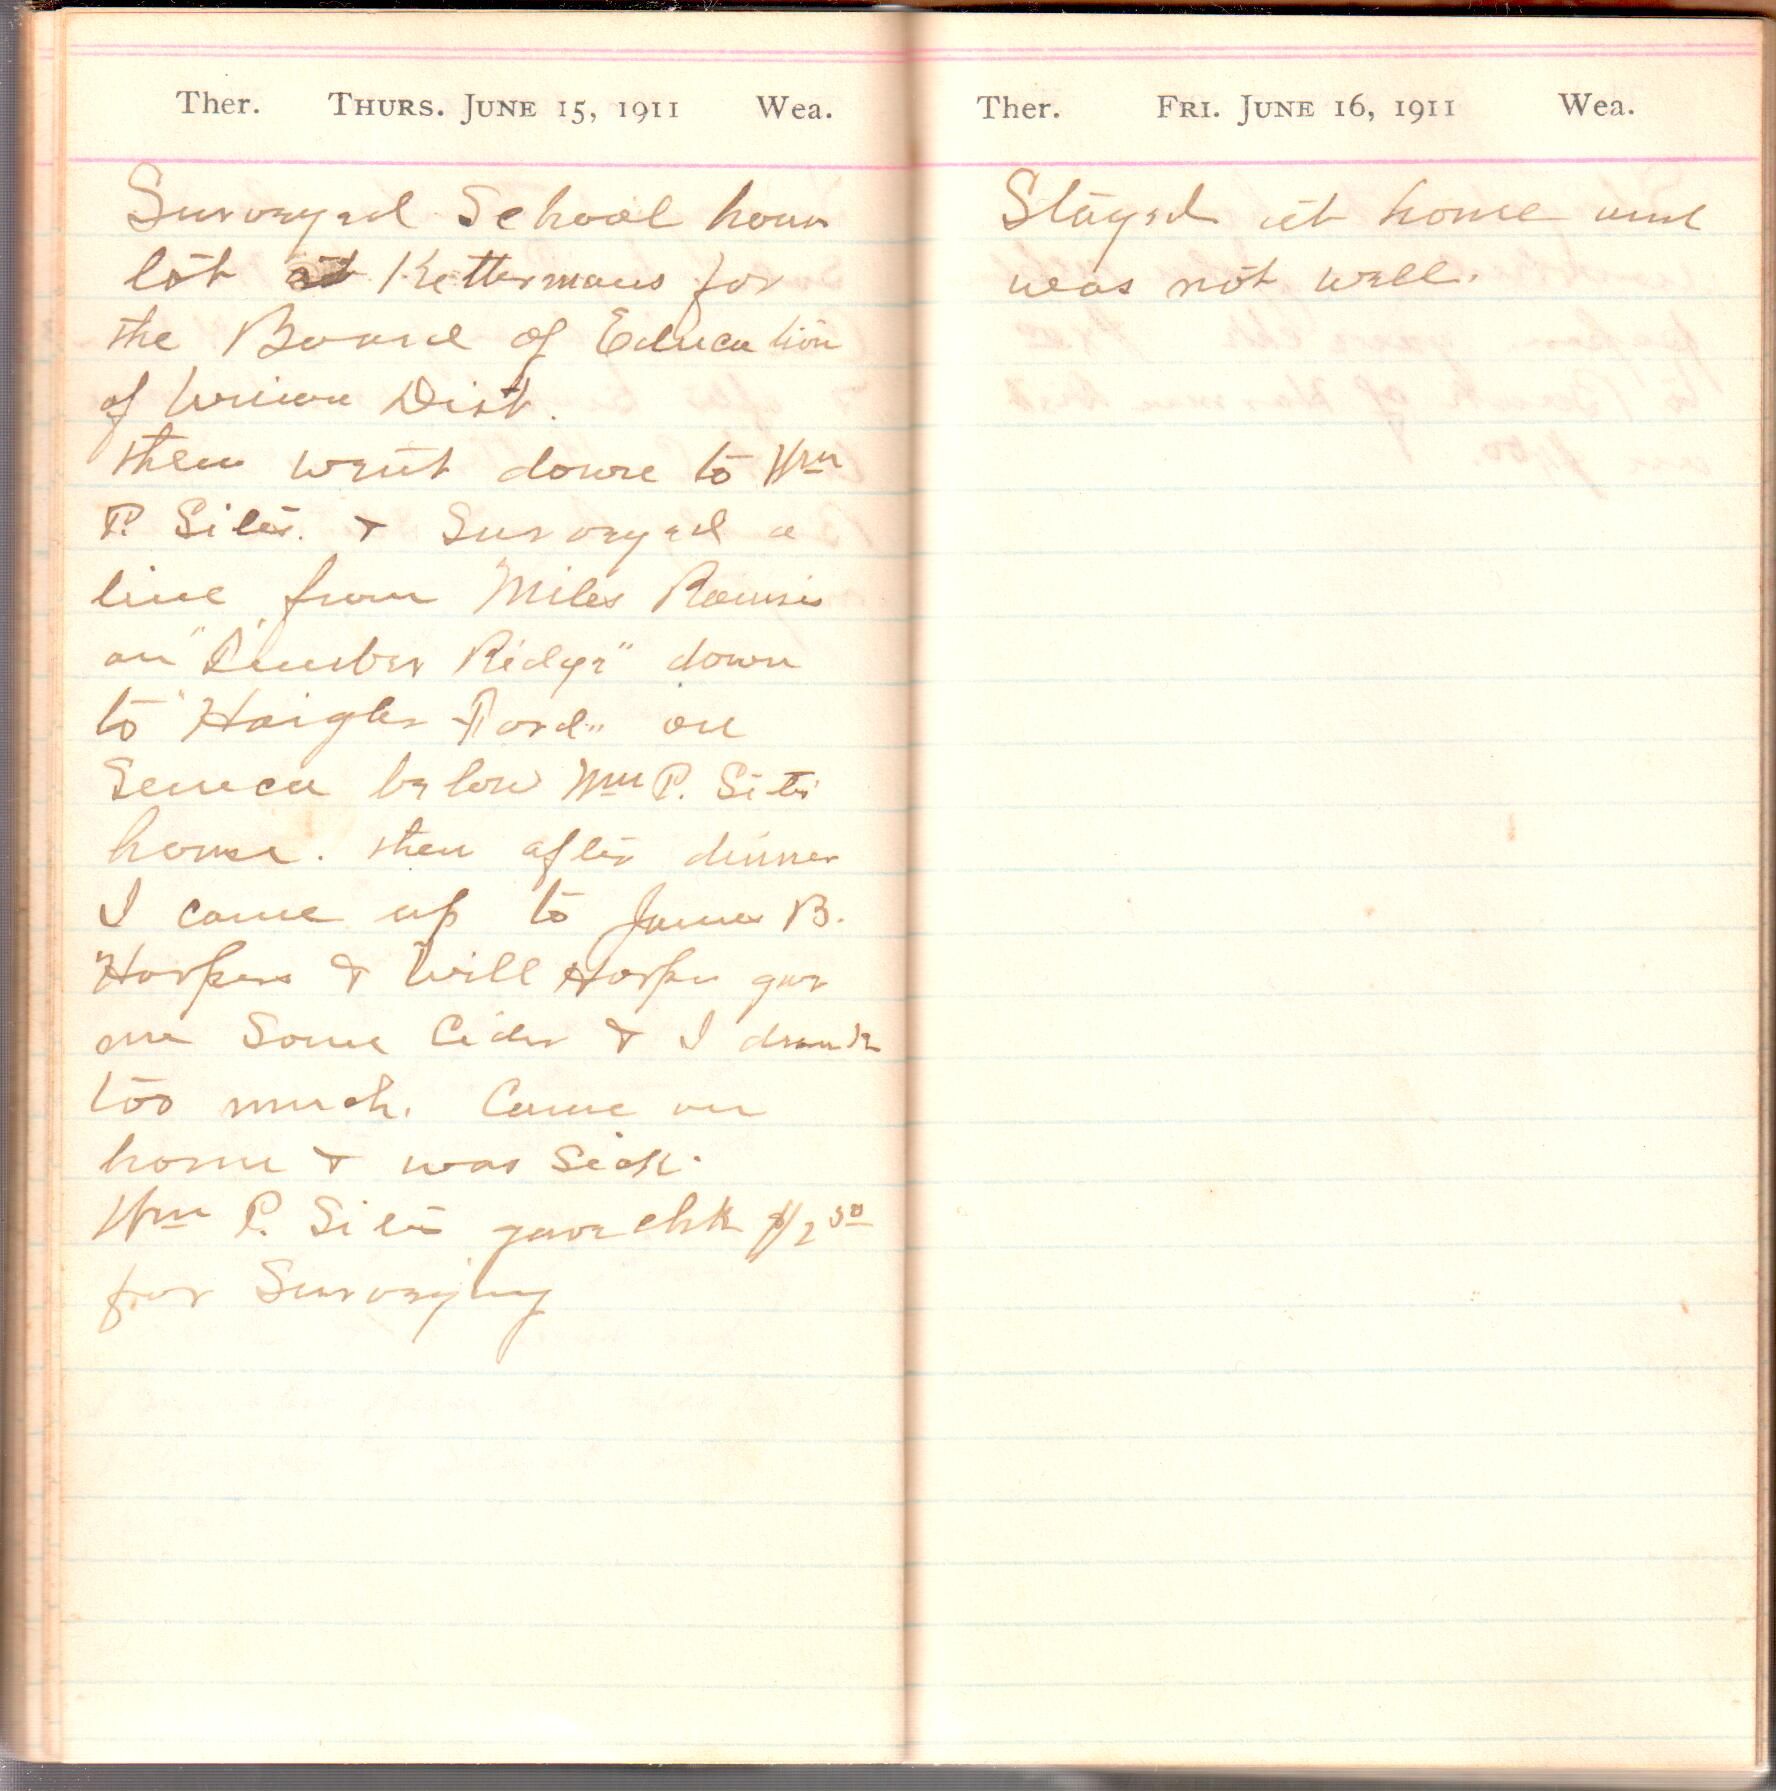 Ther. THURS. JUNE 15, 1911 Wea.
Surveyed School hous
lot at Kettermans for
the Board of Education
of Union Dist.
then went down to Wm
P. Sites. & Surveyed a
line from Miles
on "Timber Ridge" down
to "Haigler Ford" on
Seneca below Wm P. Sites
house. then after dinner
I came up to James B.
Harpers & Will Harper gave
me Some Cider & I drank
too much. Came on
home & was Sick.
Wm P. Sites gave chk $2 50
for Surveying
Ther. FRI. JUNE 16, 1911 Wea.
Stayed at home and
was not well.